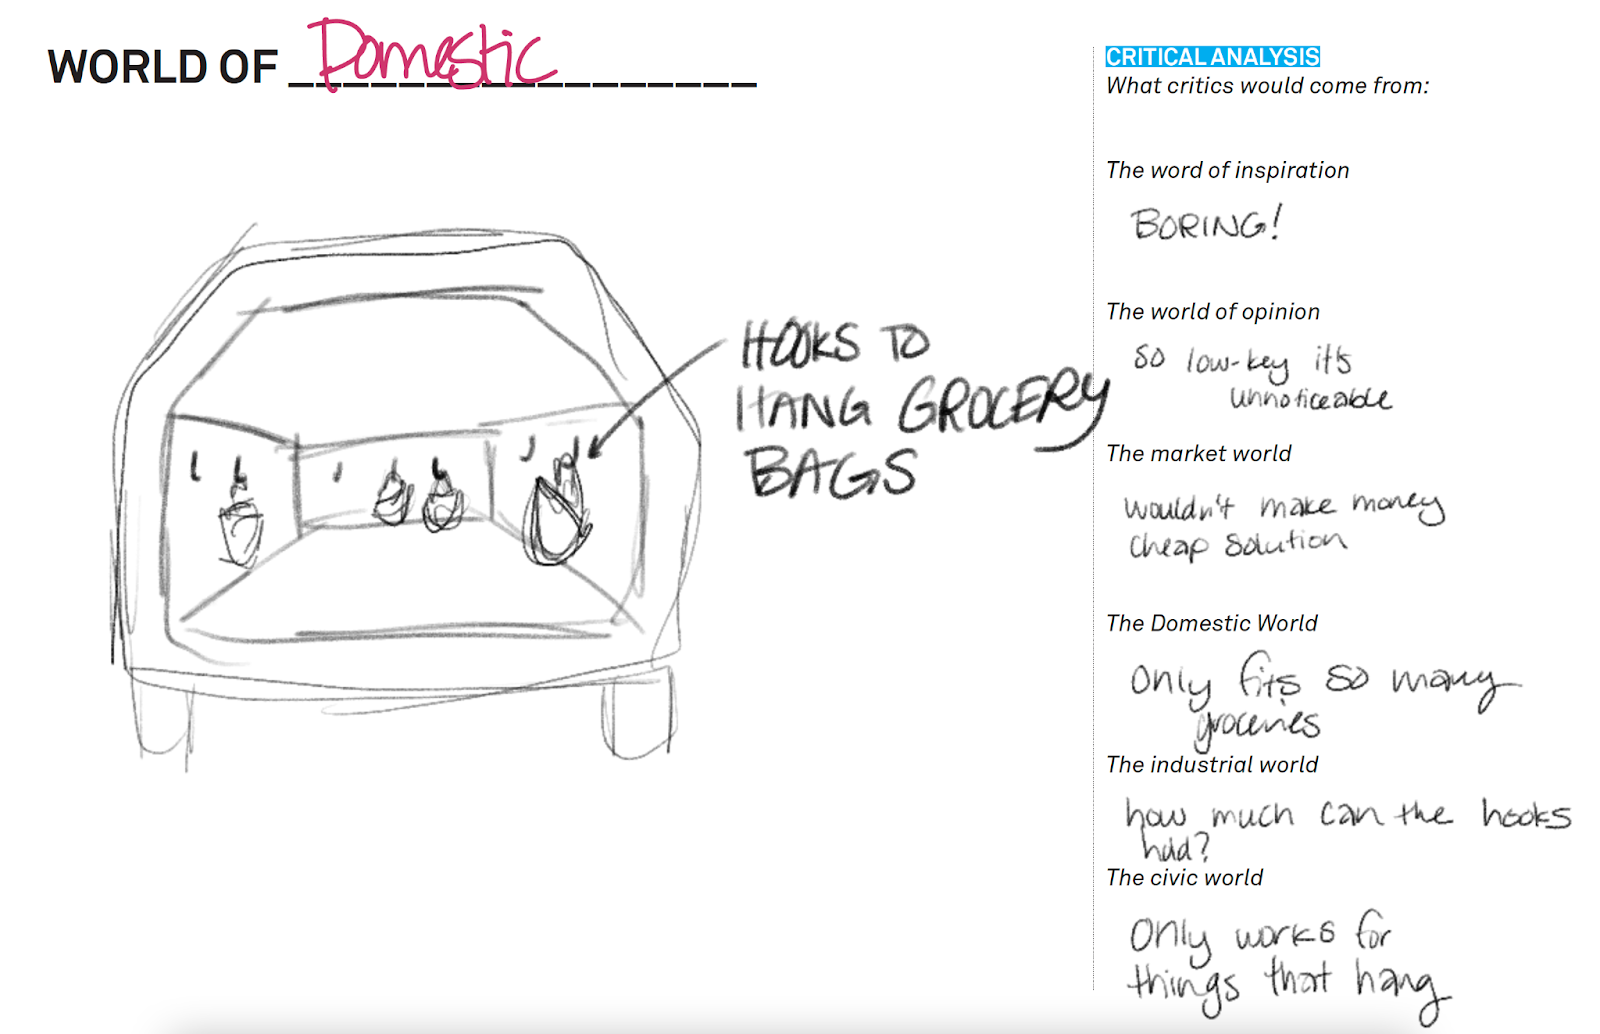 WORLD OF Domestic
HOOKS TO
HANG GROCERY
BAGS
CRITICAL ANALYSIS
What critics would come from:
The word of inspiration
BORING!
The world of opinion
so low-key it's
unnoticeable
The market world
wouldn't make money
cheap solution
The Domestic World
Only fits so many
groceries
The industrial world
how much can the hooks
hold?
The civic world
Only works for
things that hang